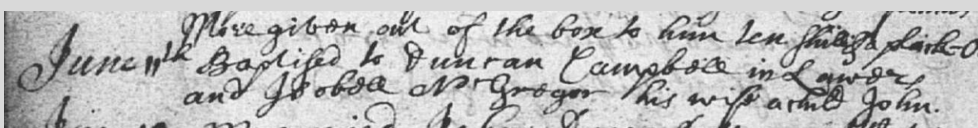 More given out of the box to him ten shillings
June 11th Baptised to Duncan Campbell in Lawers
and Isobell NcGregor his wife a child John.